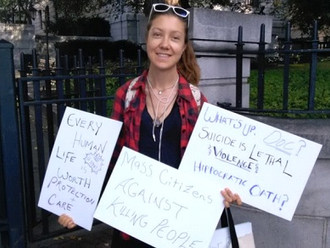 EVERY
HUMAN
LIFE
WORTH
PROTECTION
& CARE
MASS CITIZENS
AGAINST
KILLING PEOPLE
WHAT'S UP, DOC?
SUICIDE IS LETHAL
VIOLENCE
HIPPOCRATIC OATH?